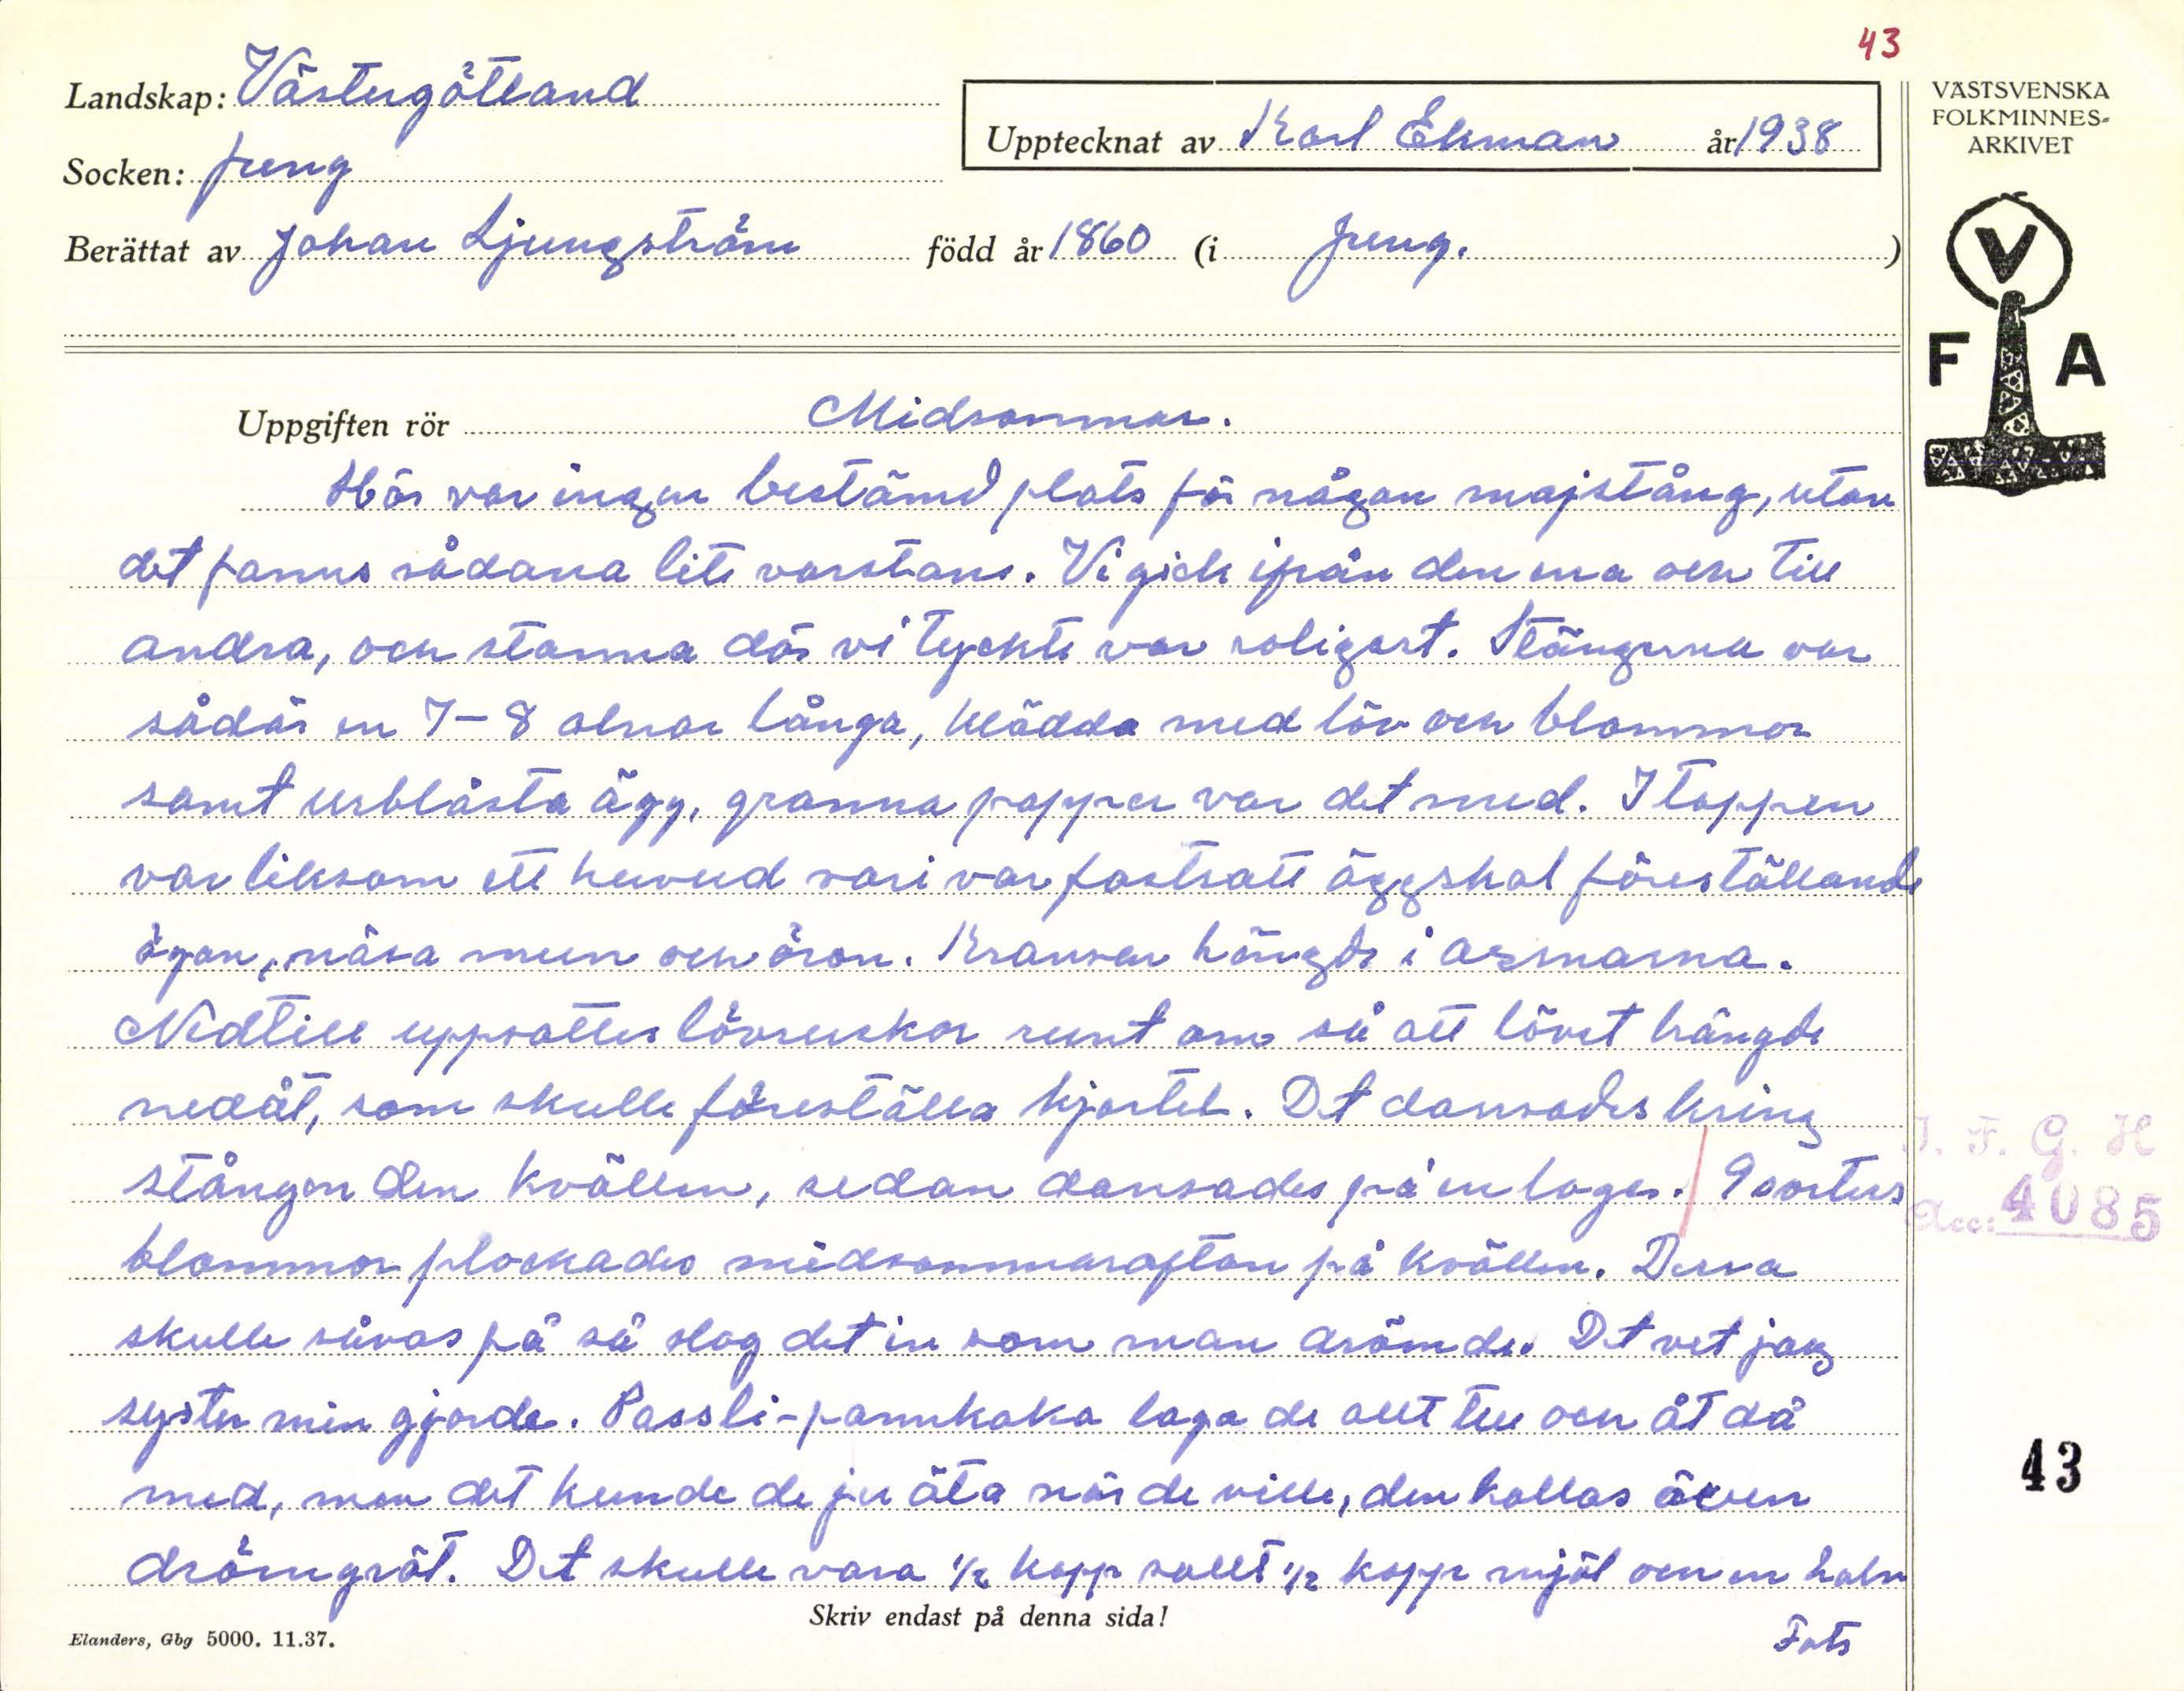 43
Landskap: Västergötland
Upptecknat av Karl Ekman år 1938
VÄSTSVENSKA
FOLKMINNES-
ARKIVET
Socken: Jung
Berättat av Johan Ljungström född år 1860 (i Jung.)
V
F A
Uppgiften rör Midsommar.
Här var ingen bestämd plats för någon majstång, utan
det fanns sådana lite varstans. Vi gick ifrån den ena och till
andra, och stanna där vi tyckte var roligast. Stängerna var
sådär en 7-8 alnar långa, klädda med löv och blommor
samt urblåsta ägg, granna papper var det med. I toppen
var liksom ett huvud vari var fastsatt äggskal föreställande
ögon, näsa mun och öron. Kransar hängde i armarna.
Nedtill uppsattes lövruskor runt om så att lövet hängde
nedåt, som skulle föreställa kjortel. Det dansades kring
stången den kvällen, sedan dansades på en loge. / 9 sorters
blommor plockades midsommarafton på kvällen. Dessa
skulle sovas på så slog det in som man drömde. Det vet jag
syster min gjorde. Passli-pannkaka laga de allt till och åt då
med, men det kunde de ju äta när de ville, den kallas även
drömgröt. Det skulle vara 1/2 kopp sallt 1/2 kopp mjöl och en halv
Forts
I. F. G. H
Acc: 4085
43
Skriv endast på denna sida!
Elanders, Gbg 5000. 11.37.